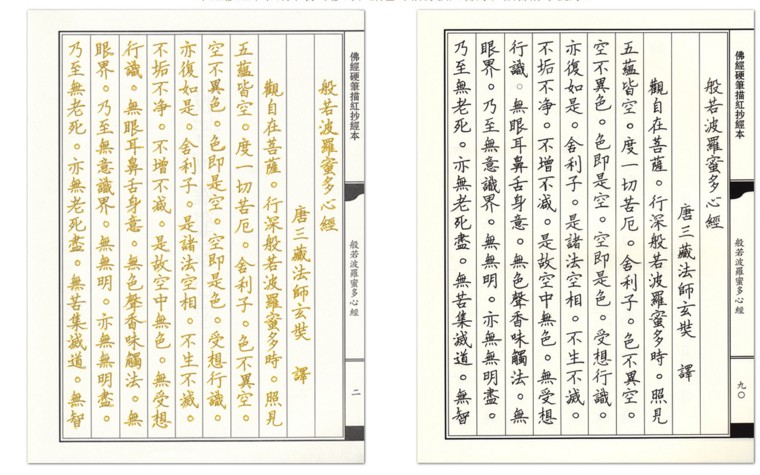 佛經硬筆描紅抄經本
般若波羅蜜多心經
二
般若波羅蜜多心經
唐三藏法師玄奘 譯
觀自在菩薩。行深般若波羅蜜多時。照見
五蘊皆空。度一切苦厄。舍利子。色不異空。
空不異色。色即是空。空即是色。受想行識。
亦復如是。舍利子。是諸法空相。不生不滅。
不垢不净。不增不減。是故空中無色。無受想
行識。無眼耳鼻舌身意。無色聲香味觸法。無
眼界。乃至無意識界。無無明。亦無無明盡。
乃至無老死。亦無老死盡。無苦集滅道。無智
佛經硬筆描紅抄經本
般若波羅蜜多心經
九〇
般若波羅蜜多心經
唐三藏法師玄奘 譯
觀自在菩薩。行深般若波羅蜜多時。照見
五蘊皆空。度一切苦厄。舍利子。色不異空。
空不異色。色即是空。空即是色。受想行識。
亦復如是。舍利子。是諸法空相。不生不滅。
不垢不净。不增不減。是故空中無色。無受想
行識。無眼耳鼻舌身意。無色聲香味觸法。無
眼界。乃至無意識界。無無明。亦無無明盡。
乃至無老死。亦無老死盡。無苦集滅道。無智